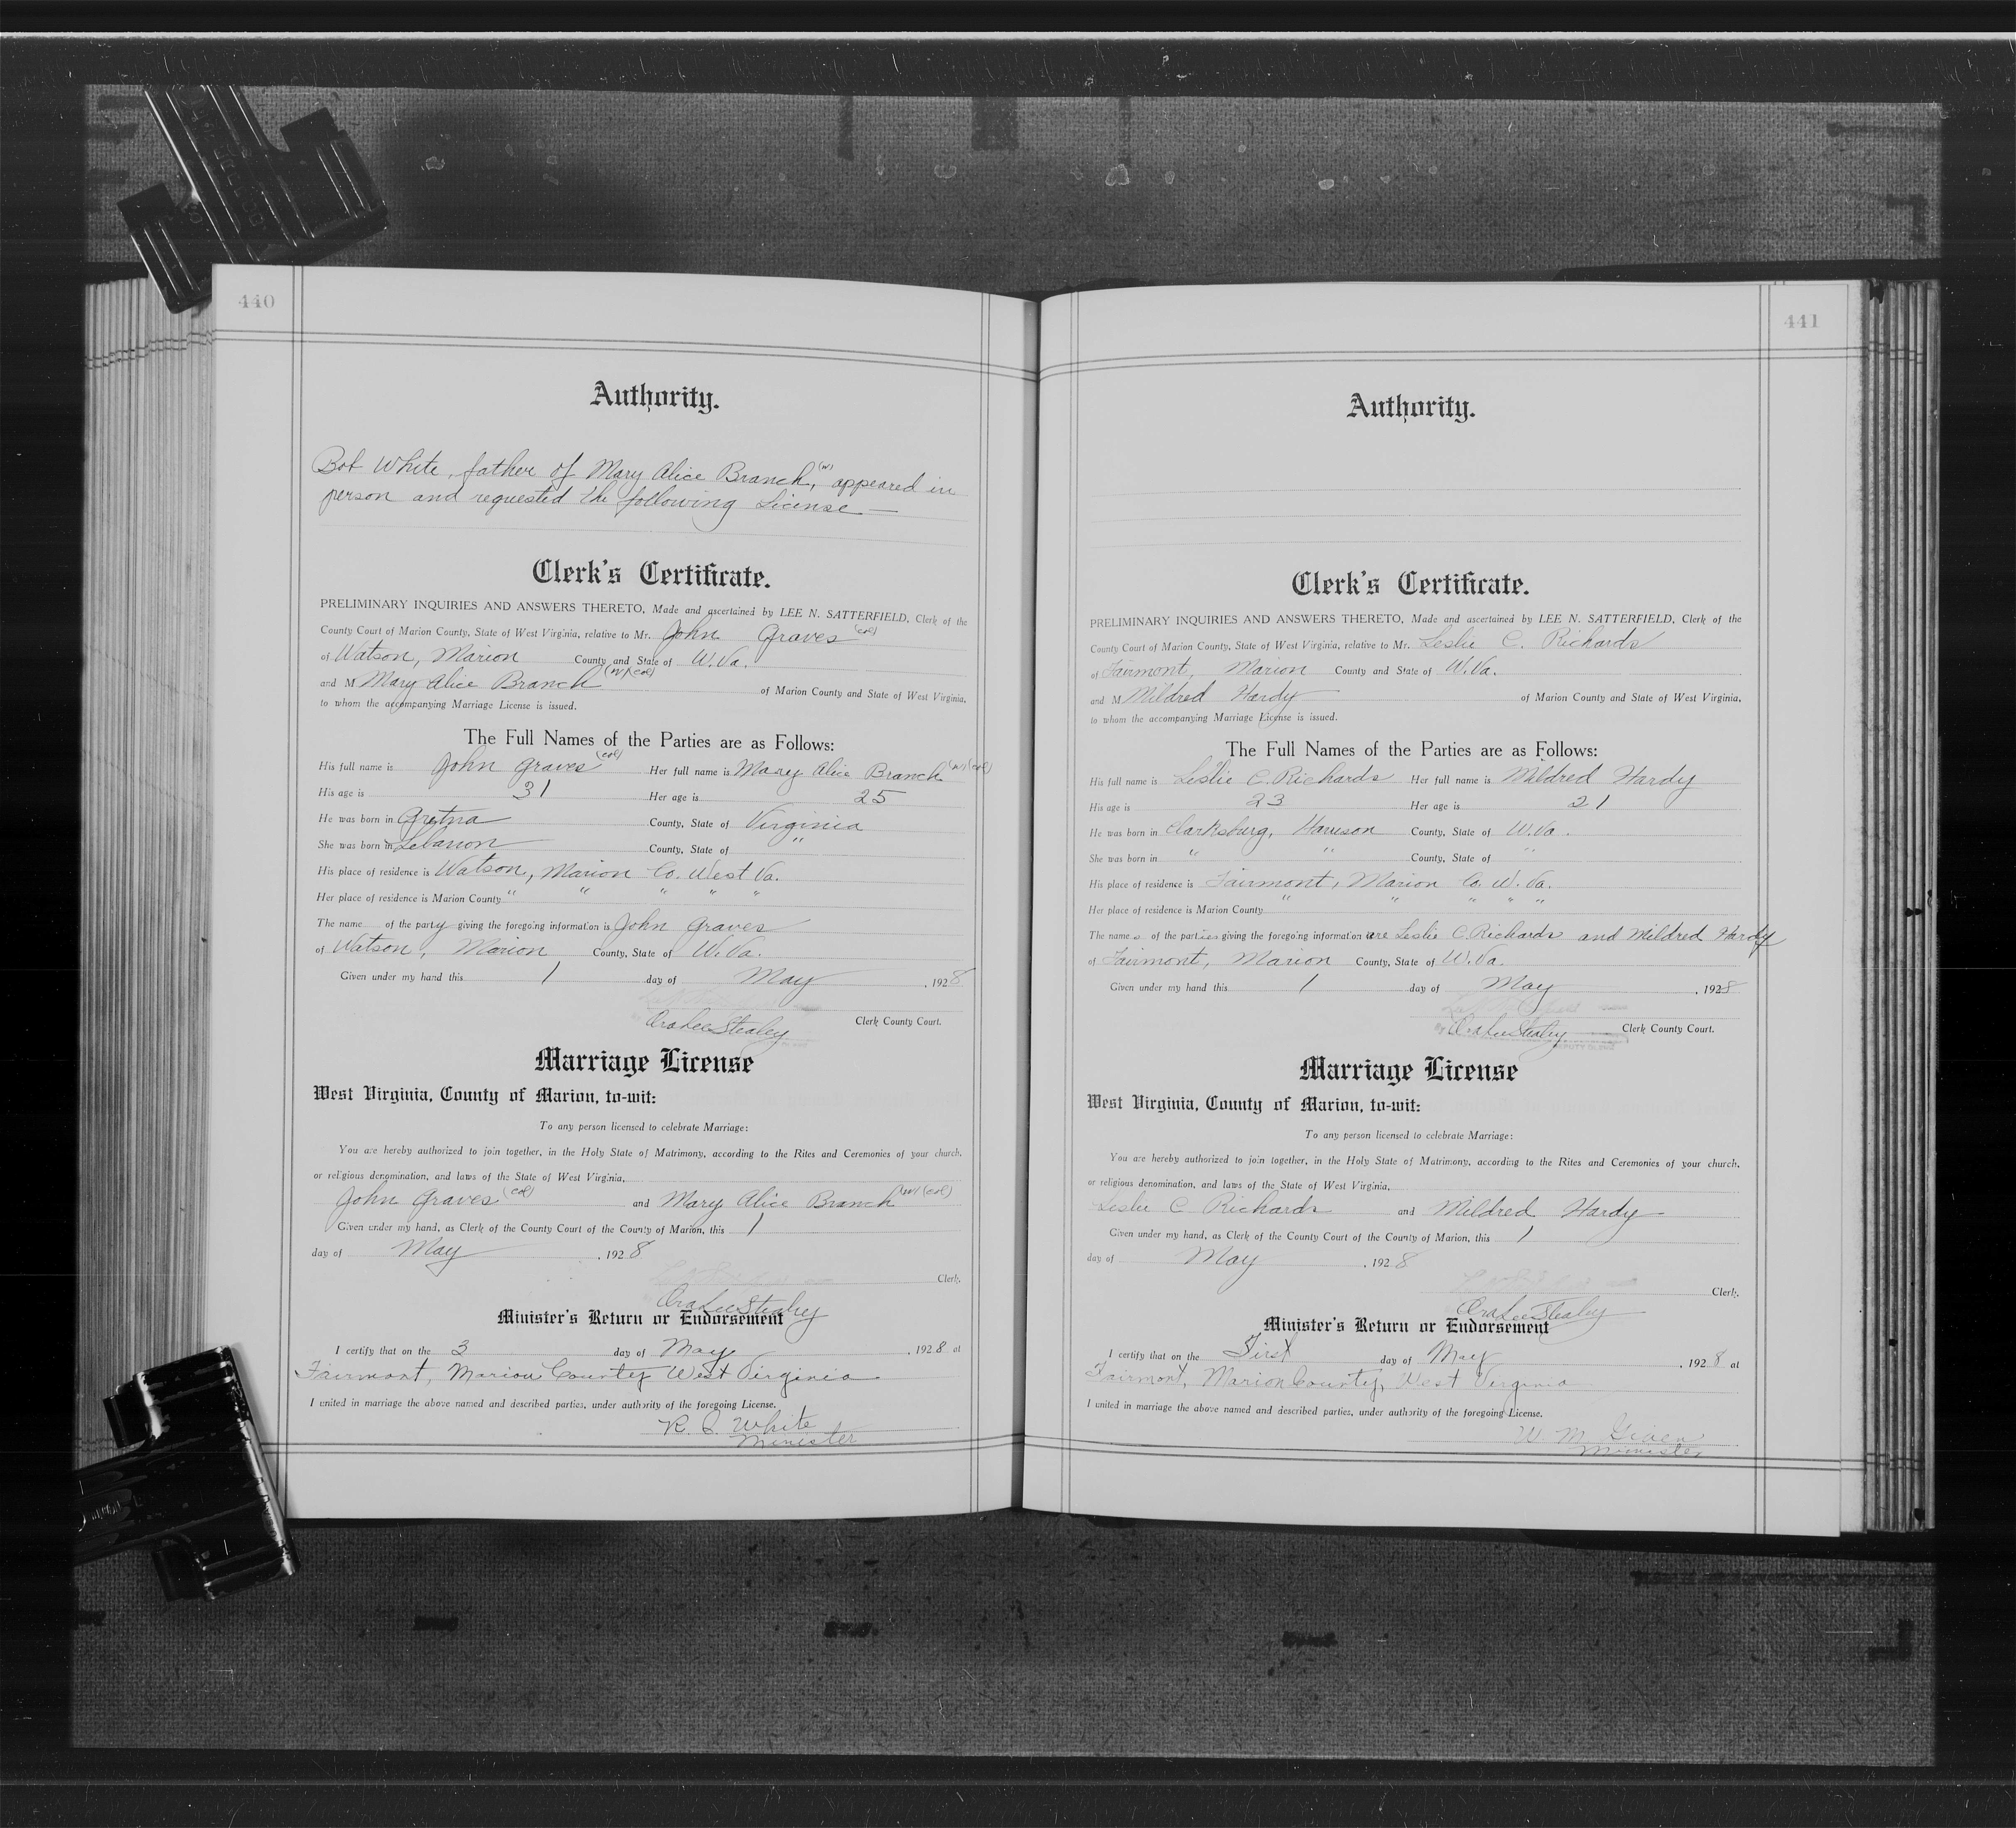 440
Authority.
Bob White, father of Mary Alice Branch, (w) appeared in
person and requested the following License —
Clerk's Certificate.
PRELIMINARY INQUIRIES AND ANSWERS THERETO, Made and ascertained by LEE N. SATTERFIELD, Clerk of the
County Court of Marion County, State of West Virginia, relative to Mr. John Graves (col)
of Watson, Marion County and State of W. Va.
and M Mary Alice Branch (w) (col) of Marion County and State of West Virginia,
to whom the accompanying Marriage License is issued.
The Full Names of the Parties are as Follows:
His full name is John Graves (col) Her full name is Mary Alice Branch (w) (col)
His age is 31 Her age is 25
He was born in Gretna County, State of Virginia
She was born in Lebanon County, State of "
His place of residence is Watson, Marion Co. West Va.
Her place of residence is Marion County " " " " "
The name of the party giving the foregoing information is John Graves
of Watson, Marion County, State of W. Va.
Given under my hand this 1 day of May, 1928
Ora Lee Stealey Clerk County Court.
Marriage License
West Virginia, County of Marion, to-wit:
To any person licensed to celebrate Marriage:
You are hereby authorized to join together, in the Holy State of Matrimony, according to the Rites and Ceremonies of your church,
or religious denomination, and laws of the State of West Virginia,
John Graves (col) and Mary Alice Branch (w) (col)
Given under my hand, as Clerk of the County Court of the County of Marion, this 1
day of May, 1928
Clerk.
Ora Lee Stealey
Minister's Return or Endorsement
I certify that on the 3 day of May, 1928 at
Fairmont, Marion County West Virginia
I united in marriage the above named and described parties, under authority of the foregoing License.
R. J. White
Minister
441
Authority.
Clerk's Certificate.
PRELIMINARY INQUIRIES AND ANSWERS THERETO, Made and ascertained by LEE N. SATTERFIELD, Clerk of the
County Court of Marion County, State of West Virginia, relative to Mr. Leslie C. Richards
of Fairmont, Marion County and State of W. Va.
and M Mildred Hardy of Marion County and State of West Virginia,
to whom the accompanying Marriage License is issued.
The Full Names of the Parties are as Follows:
His full name is Leslie C. Richards Her full name is Mildred Hardy
His age is 23 Her age is 21
He was born in Clarksburg, Harrison County, State of W. Va.
She was born in " " County, State of "
His place of residence is Fairmont, Marion Co. W. Va.
Her place of residence is Marion County " " " " "
The names of the parties giving the foregoing information are Leslie C. Richards and Mildred Hardy
of Fairmont, Marion County, State of W. Va.
Given under my hand this 1 day of May, 1928
Ora Lee Stealey Clerk County Court.
DEPUTY CLERK
Marriage License
West Virginia, County of Marion, to-wit:
To any person licensed to celebrate Marriage:
You are hereby authorized to join together, in the Holy State of Matrimony, according to the Rites and Ceremonies of your church,
or religious denomination, and laws of the State of West Virginia,
Leslie C Richards and Mildred Hardy
Given under my hand, as Clerk of the County Court of the County of Marion, this 1
day of May, 1928
Clerk.
Ora Lee Stealey
Minister's Return or Endorsement
I certify that on the First day of May, 1928 at
Fairmont, Marion County, West Virginia
I united in marriage the above named and described parties, under authority of the foregoing License.
W. M. Given
Minister